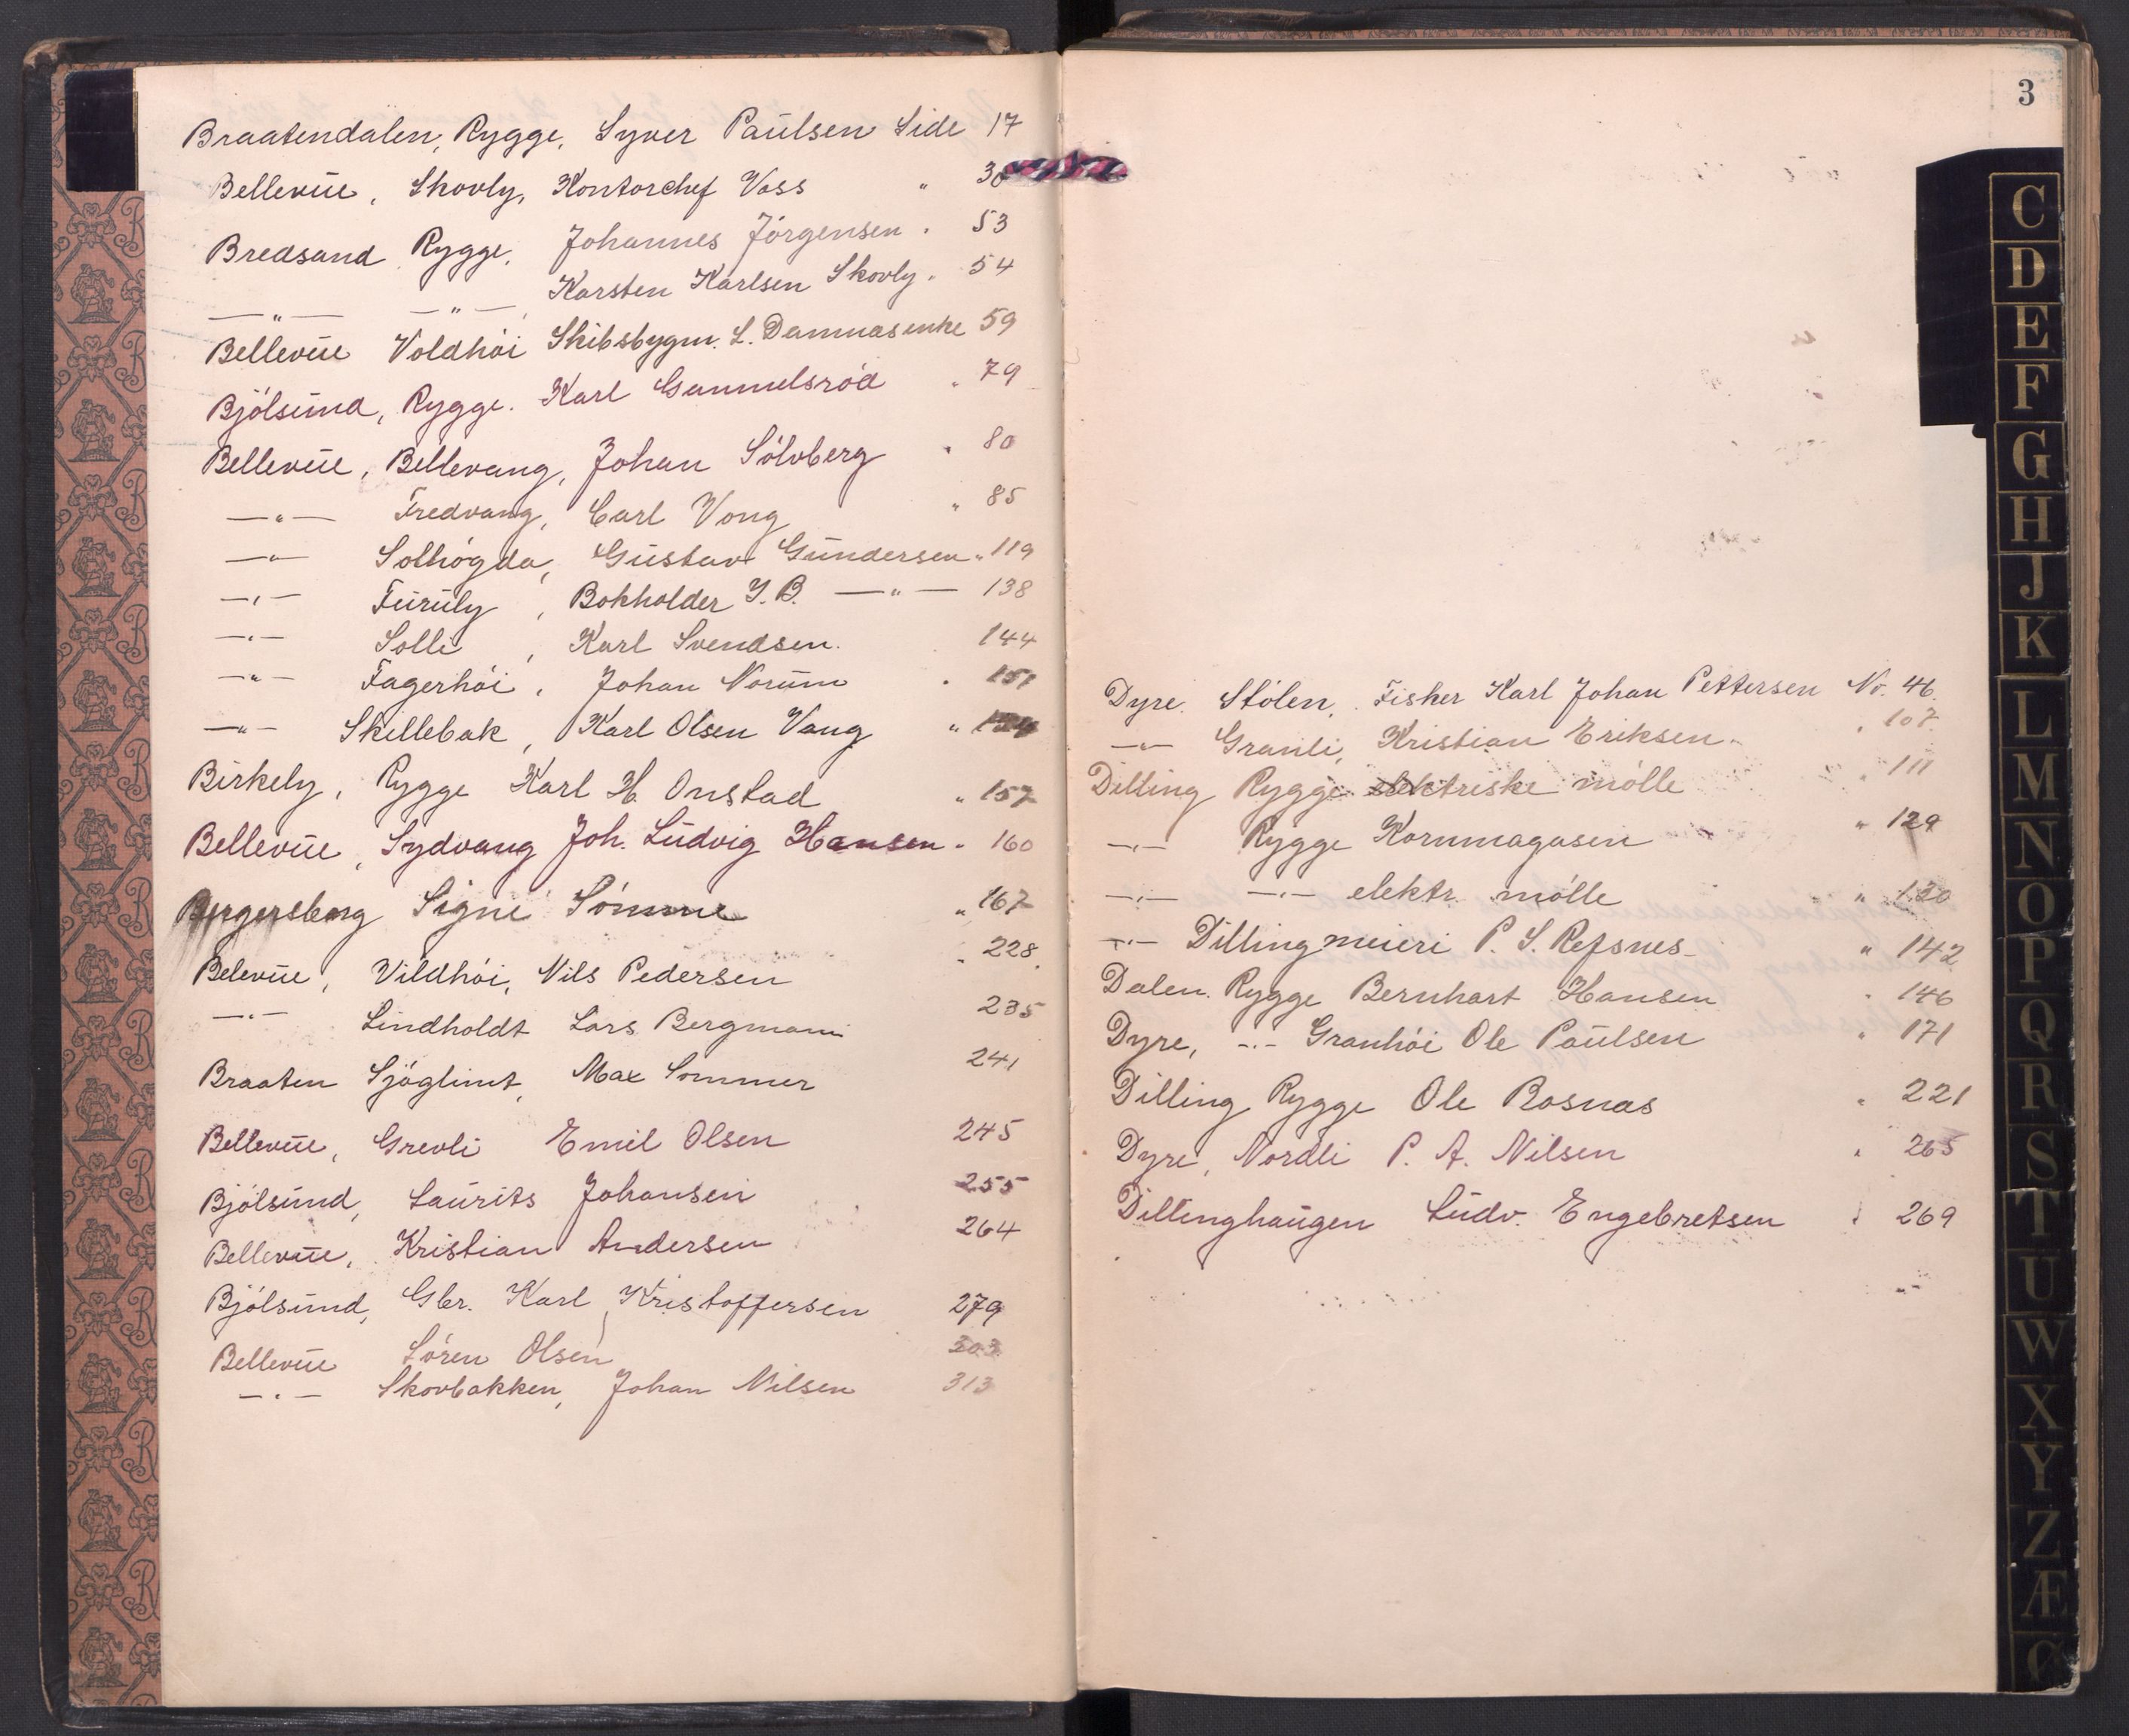 Braatendalen, Rygge, Syver Paulsen Side 17
Bellevue, Skovly, Kontorchef Voss " 30
Bredsand Rygge, Johannes Jörgensen " 53
—"— —"—, Karsten Karlsen Skovly " 54
Bellevue Voldhöi Skibsbygm. L. Damnas enke 59
Bjölsund, Rygge. Karl Gammelsröd " 79
Bellevue, Bellevang, Johan Sölvberg " 80
—"— Fredvang, Carl Vong " 85
—"— Solhögda, Gustav Gundersen " 119
—"— Furuly, Bokholder J. B. —"— 138
—"— Solli, Karl Svendsen 144
—"— Fagerhöi, Johan Norum " 151
—"— Skillebak, Karl Olsen Vang "
Birkely, Rygge Karl H. Onstad " 157
Bellevue, Sydvang Joh. Ludvig Hansen " 160
Bergersborg Signe Sömme " 167
Belevue, Vildhöi, Nils Pedersen " 228.
—"— Lindholdt Lars Bergmann 235
Braaten Sjöglimt, Max Sommer 241
Bellevue, Grevli Emil Olsen 245
Bjölsund, Laurits Johansen 255
Bellevue, Kristian Andersen 264
Bjölsund, Gbr. Karl, Kristoffersen 279
Bellevue Sören Olsen 303
—"— Skovbakken, Johan Nilsen 313
3
Dyre. Stölen, Fisker Karl Johan Pettersen No. 46.
—"— Granli, Kristian Eriksen " 107
Dilling Rygge elektriske mölle " 111
—"— Rygge Kornmagasin " 129
—"— —"— elektr. mölle " 130
—"— Dilling meieri P. S. Refsnes " 142
Dalen. Rygge Bernhart Hansen " 146
Dyre, —"— Granhöi Ole Paulsen " 171
Dilling Rygge Ole Rosnas " 221
Dyre, Nordli P. A. Nilsen " 265
Dillinghaugen Ludv. Engebretsen " 269
C
D
E
F
G
H
J
K
L
M
N
O
P
Q
R
S
T
U
W
X
Y
Z
Æ